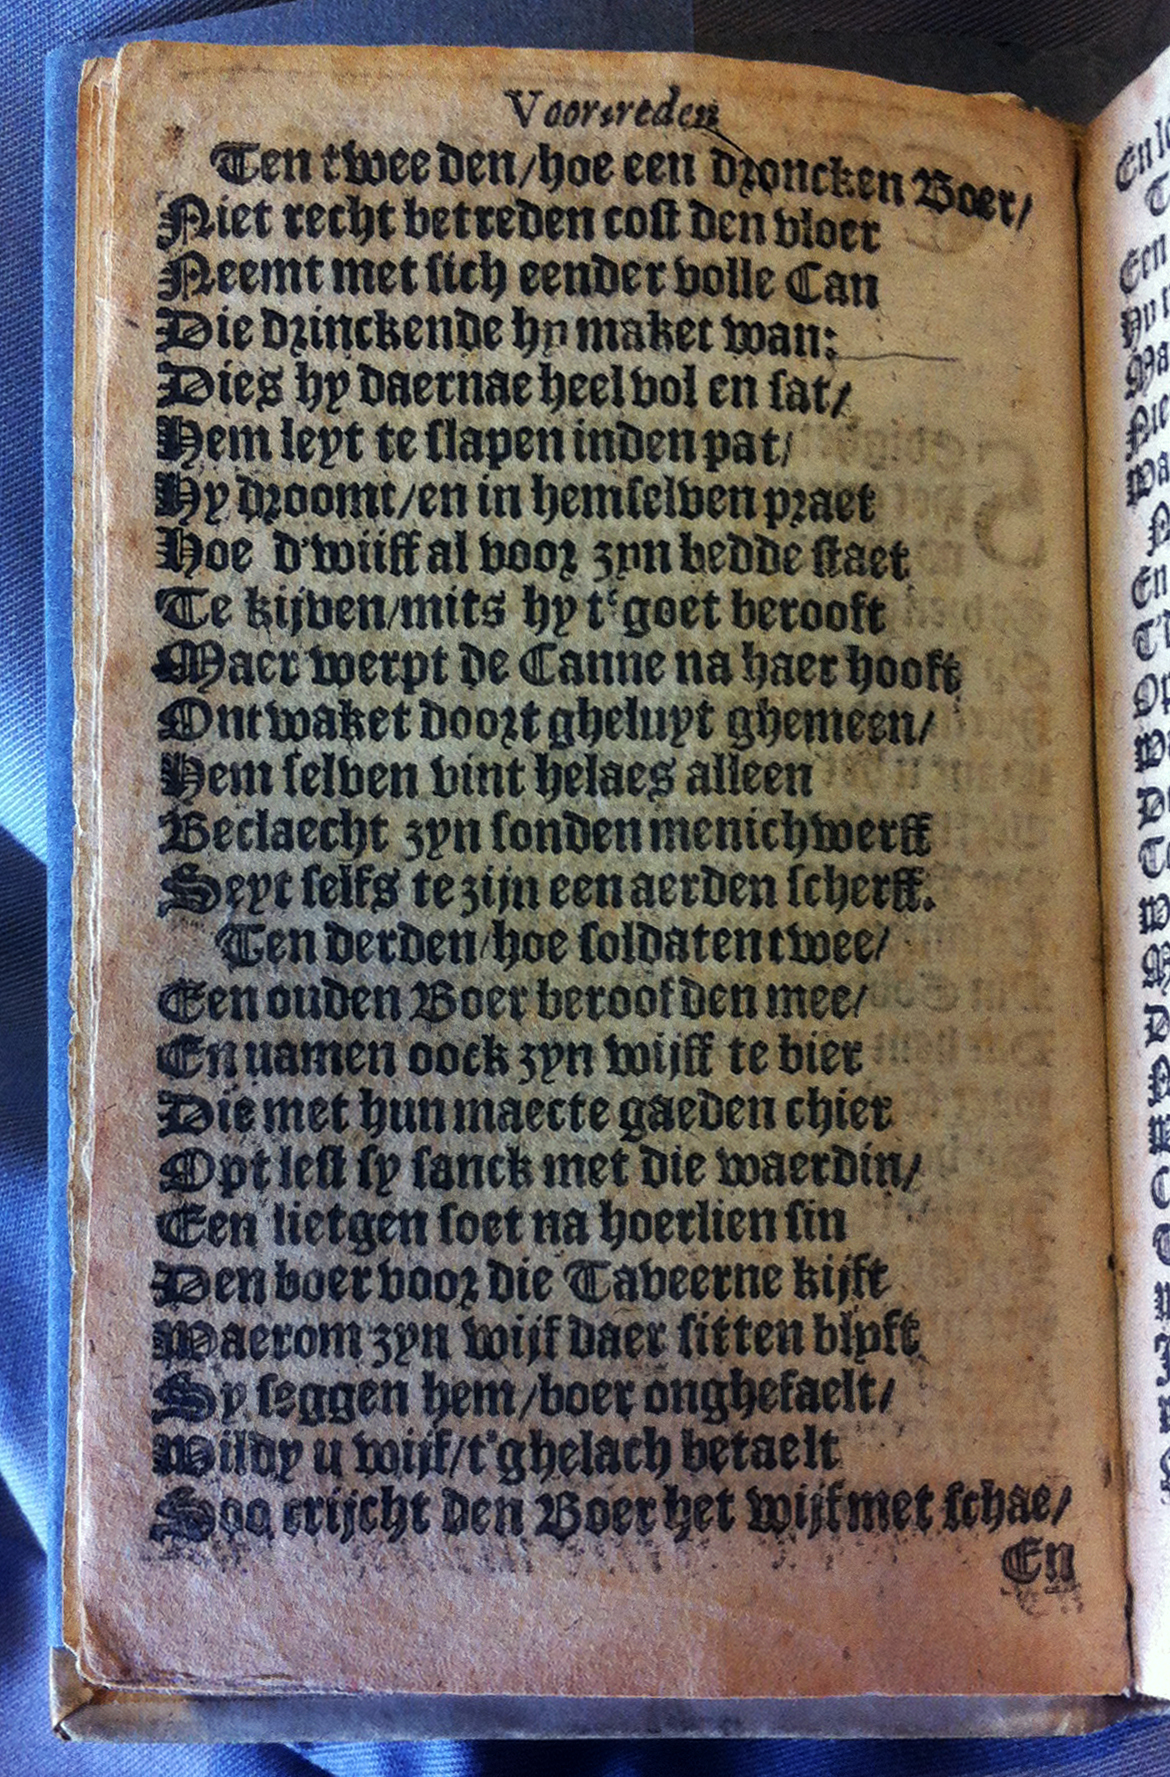 Voorreden
Ten tweeden/hoe een droncken Boer/
Niet recht betreden cost den vloer
Neemt met sich eender volle Can
Die drinckende hy maket wan:
Dies hy daernae heel vol en sat/
Hem leyt te slapen inden pat/
Hy droomt/en in hemselven praet
Hoe d'wijff al voor zyn bedde staet
Te kijven/mits hy t'goet berooft
Maer werpt de Canne na haer hooft
Ontwaket doort gheluyt ghemeen/
Hem selven vint helaes alleen
Beclaecht zyn sonden menichwerff
Seyt selfs te zijn een aerden scherff.
Ten derden/hoe soldaten twee/
Een ouden Boer beroofden mee/
En uamen oock zyn wijff te bier
Die met hun maecte gaeden chier
Opt lest sy sanck met die waerdin/
Een lietgen soet na hoerlien sin
Den boer voor die Taveerne kijft
Waerom zyn wijf daer sitten blyft
Sy seggen hem/boer onghefaelt/
Wildy u wijf/t'ghelach betaelt
Soo crijcht den Boer het wijf met schae/
En
En
Een
Hy
Ma
Nie
Wa
En